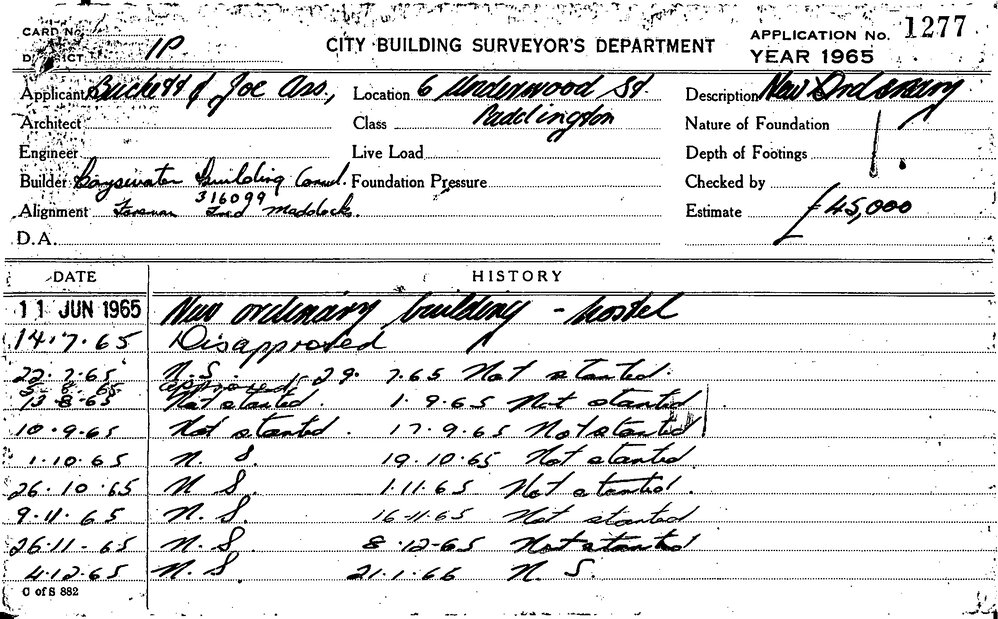 CARD No.
DISTRICT 1P
CITY BUILDING SURVEYOR'S DEPARTMENT
APPLICATION No. 1277
YEAR 1965
Applicant Buckett & Joe Ass.,
Location 6 Underwood St.
Paddington
Description New Ordinary
Architect
Class
Nature of Foundation
Engineer
Live Load
Depth of Footings
Builder Bayswater Building Consul.
Foundation Pressure
Checked by
316099
Alignment Foreman Fred Maddocks.
Estimate £45,000
D.A.
DATE HISTORY
11 JUN 1965 New ordinary building - hostel
14.7.65 Disapproved
22.7.65 N.S. 29.7.65 Not started.
3.8.65 approved
13-8-65 Not started. 1.9.65 Not started
10.9.65 Not started. 17.9.65 Not started
1.10.65 N. S. 19.10.65 Not started
26.10.65 N S. 1.11.65 Not started.
9.11.65 N. S. 16-11.65 Not started
26.11-65 N. S. 8.12-65 Not started
4.12.65 N. S. 21.1.66 N. S.
C of S 882